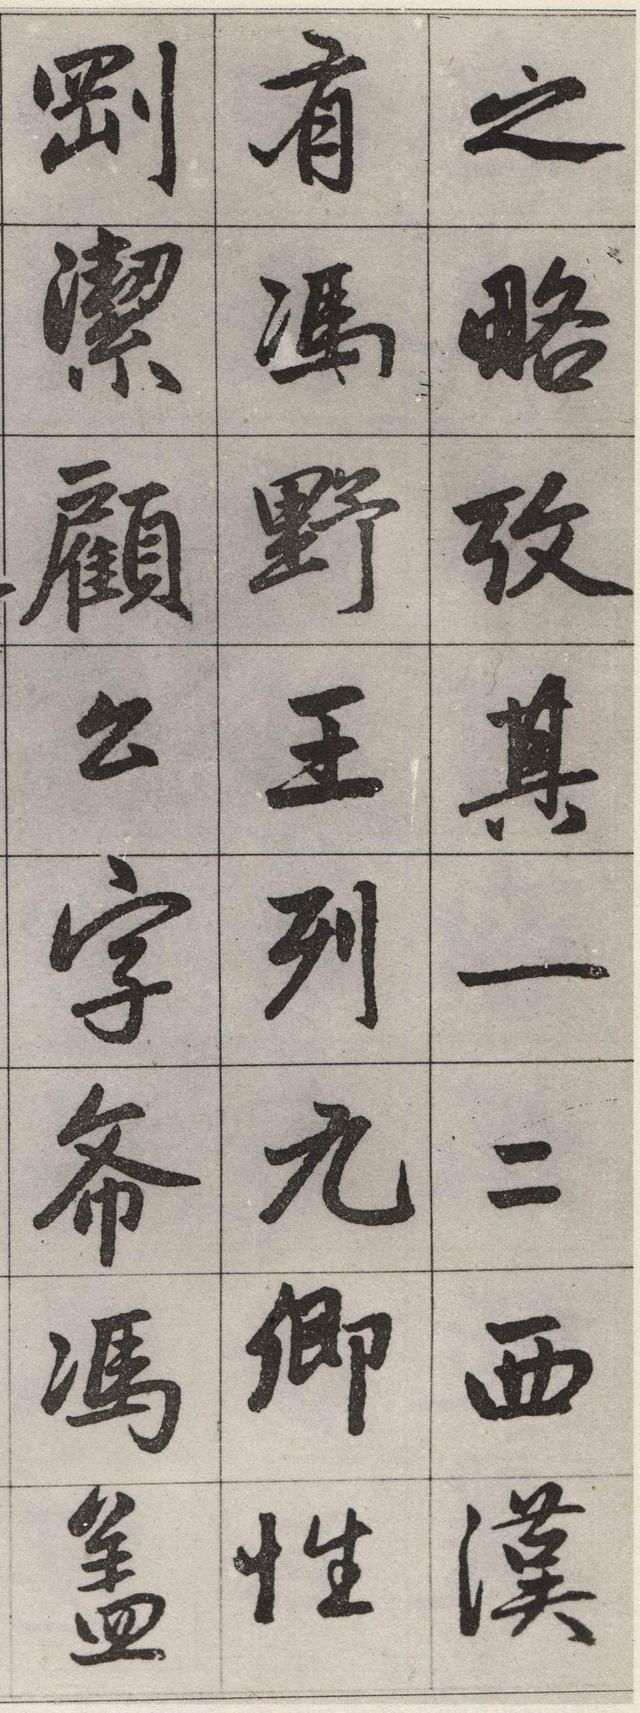 之略攷其一二西漢
有馮野王列九卿性
剛潔顧公字希馮蓋